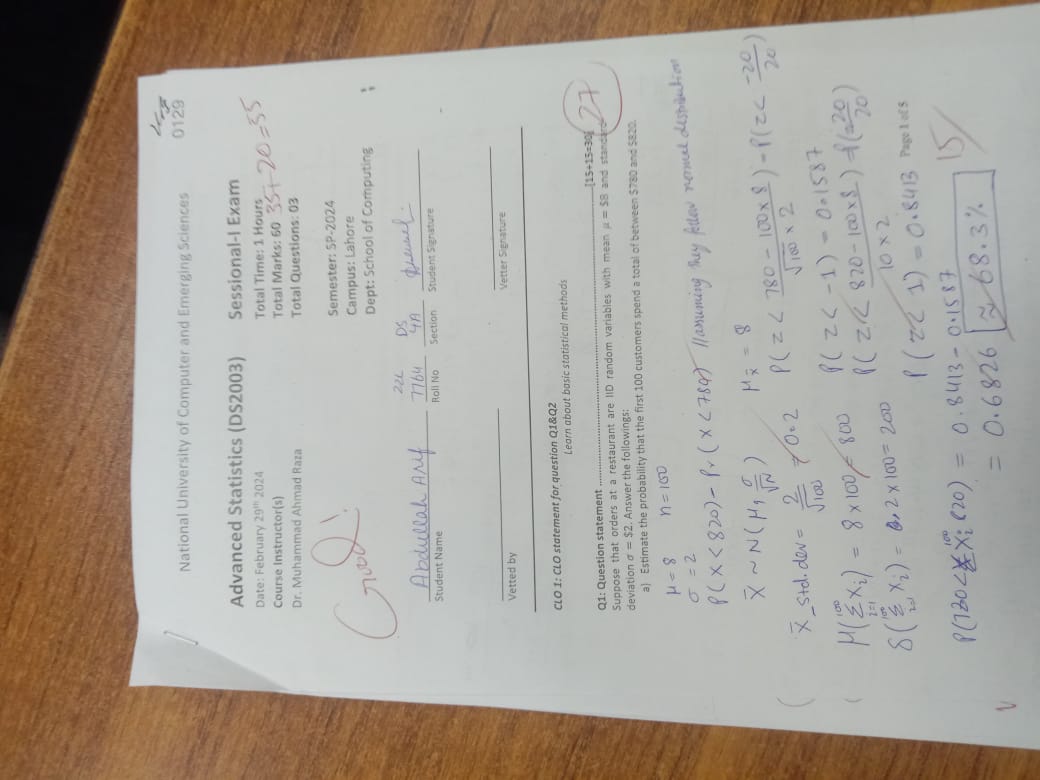 0129
National University of Computer and Emerging Sciences
Advanced Statistics (DS2003)
Sessional-I Exam
Date: February 29th 2024
Total Time: 1 Hours
Course Instructor(s)
Total Marks: 60 35+20=55
Dr. Muhammad Ahmad Raza
Total Questions: 03
Good!
Semester: SP-2024
Campus: Lahore
Dept: School of Computing
Abdullah Arif
22L 7764
DS 4A
Student Name
Roll No
Section
Student Signature
Vetted by
Vetter Signature
CLO 1: CLO statement for question Q1&Q2
Learn about basic statistical methods
Q1: Question statement ........................ [15+15=30] 27
Suppose that orders at a restaurant are IID random variables with mean μ = $8 and standard
deviation σ = $2. Answer the followings:
a) Estimate the probability that the first 100 customers spend a total of between $780 and $820.
μ = 8 n = 100
σ = 2
P(X < 820) - Pr(X < 780) //assuming they follow normal distribution
X̄ ~ N(μ, σ/√N) μx̄ = 8
X̄_std.dev = 2/√100 = 0.2
P(Z < 780 - 100×8 / √100 × 2) - P(Z < -20/20)
μ(Σ Xi) = 8 × 100 = 800
P(Z < -1) = 0.1587
δ(Σ Xi) = 2 × 100 = 200
P(Z < 820 - 100×8 / 10×2) = P(Z 20/20)
P(Z < 1) = 0.8413
Page 1 of 5
= 0.8413 - 0.1587
15/
= 0.6826 ≈ 68.3%